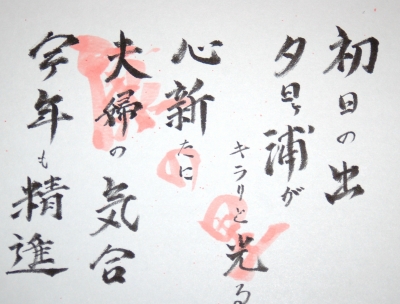 初日の出
夕日ヶ浦が
キラリと光る
心新たに
夫婦の気合
今年も精進